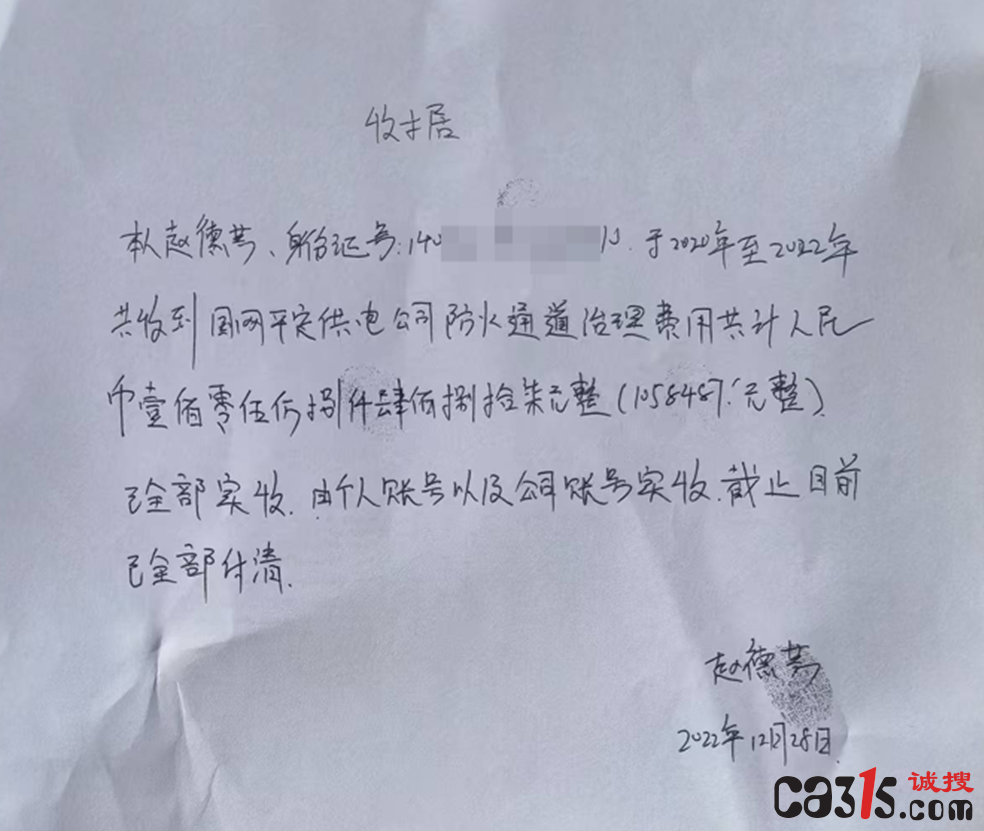 收据
本人赵德芳、身份证号:140 10.于2020年至2022年
共收到国网平定供电公司防火通道治理费用共计人民
币壹佰零伍万捌仟肆佰捌拾柒元整(1058487.元整).
已全部实收.由个人账号以及公司账号实收.截止目前
已全部付清.
赵德芳
2022年12月28日.
ca315.com 诚搜